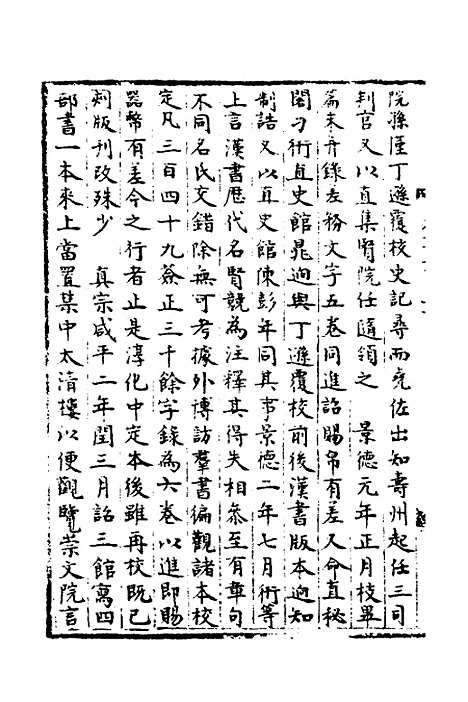 院孫僅丁遜覆校史記尋而堯佐出知壽州起任三司
判官又以直集賢院任隨領之　景德元年正月校畢
篇末升錄差務文字五卷同進詔賜帛有差又命直秘
閣刁衎直史館晁迥與丁遜覆校前後漢書版本迥知
制誥又以直史館陳彭年同其事景德二年七月衎等
上言漢書歷代名賢競為注釋其得失相叅至有章句
不同名氏交錯除無可考據外博訪羣書徧觀諸本校
定凡三百四十九簽正三千餘字錄為六卷以進即賜
器幣有差今之行者止是淳化中定本後雖再校既已
刻版刊改殊少　真宗咸平二年閏三月詔三館寫四
部書一本來上當置禁中太清樓以便觀覽崇文院言